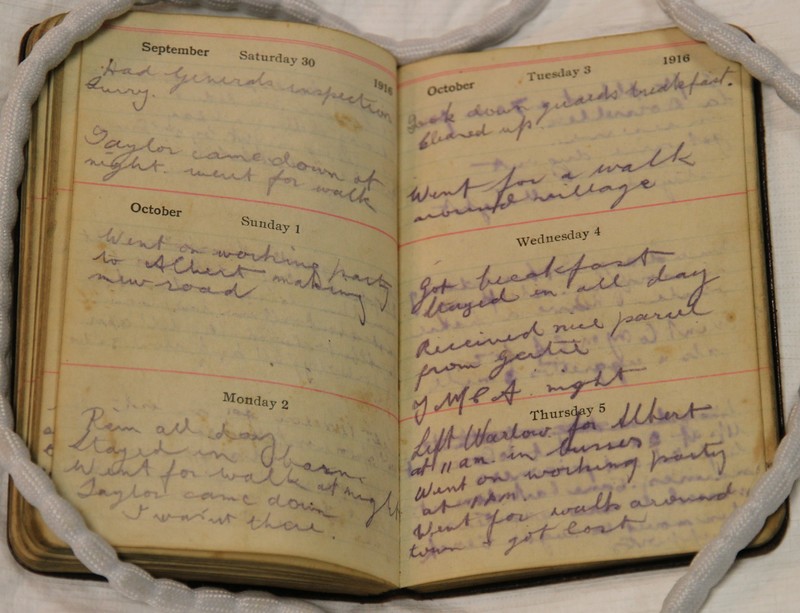 September Saturday 30
1916
Had Generals inspection
Surry.
Taylor came down at
night. went for walk
October Sunday 1
Went on working party
to Albert making
new road
Monday 2
Rain all day
Stayed in barn
Went for walk at night
Taylor came down
I wasn't there.
October Tuesday 3 1916
Took down guards breakfast.
Cleared up.
Went for a walk
around village
Wednesday 4
Got breakfast
Stayed in all day
Received nice parcel
from Gertie
Y M C A. night
Thursday 5
Left Warlow for Albert
at 11 am in busses
Went on working party
at 1 AM
Went for walk around
town & got lost